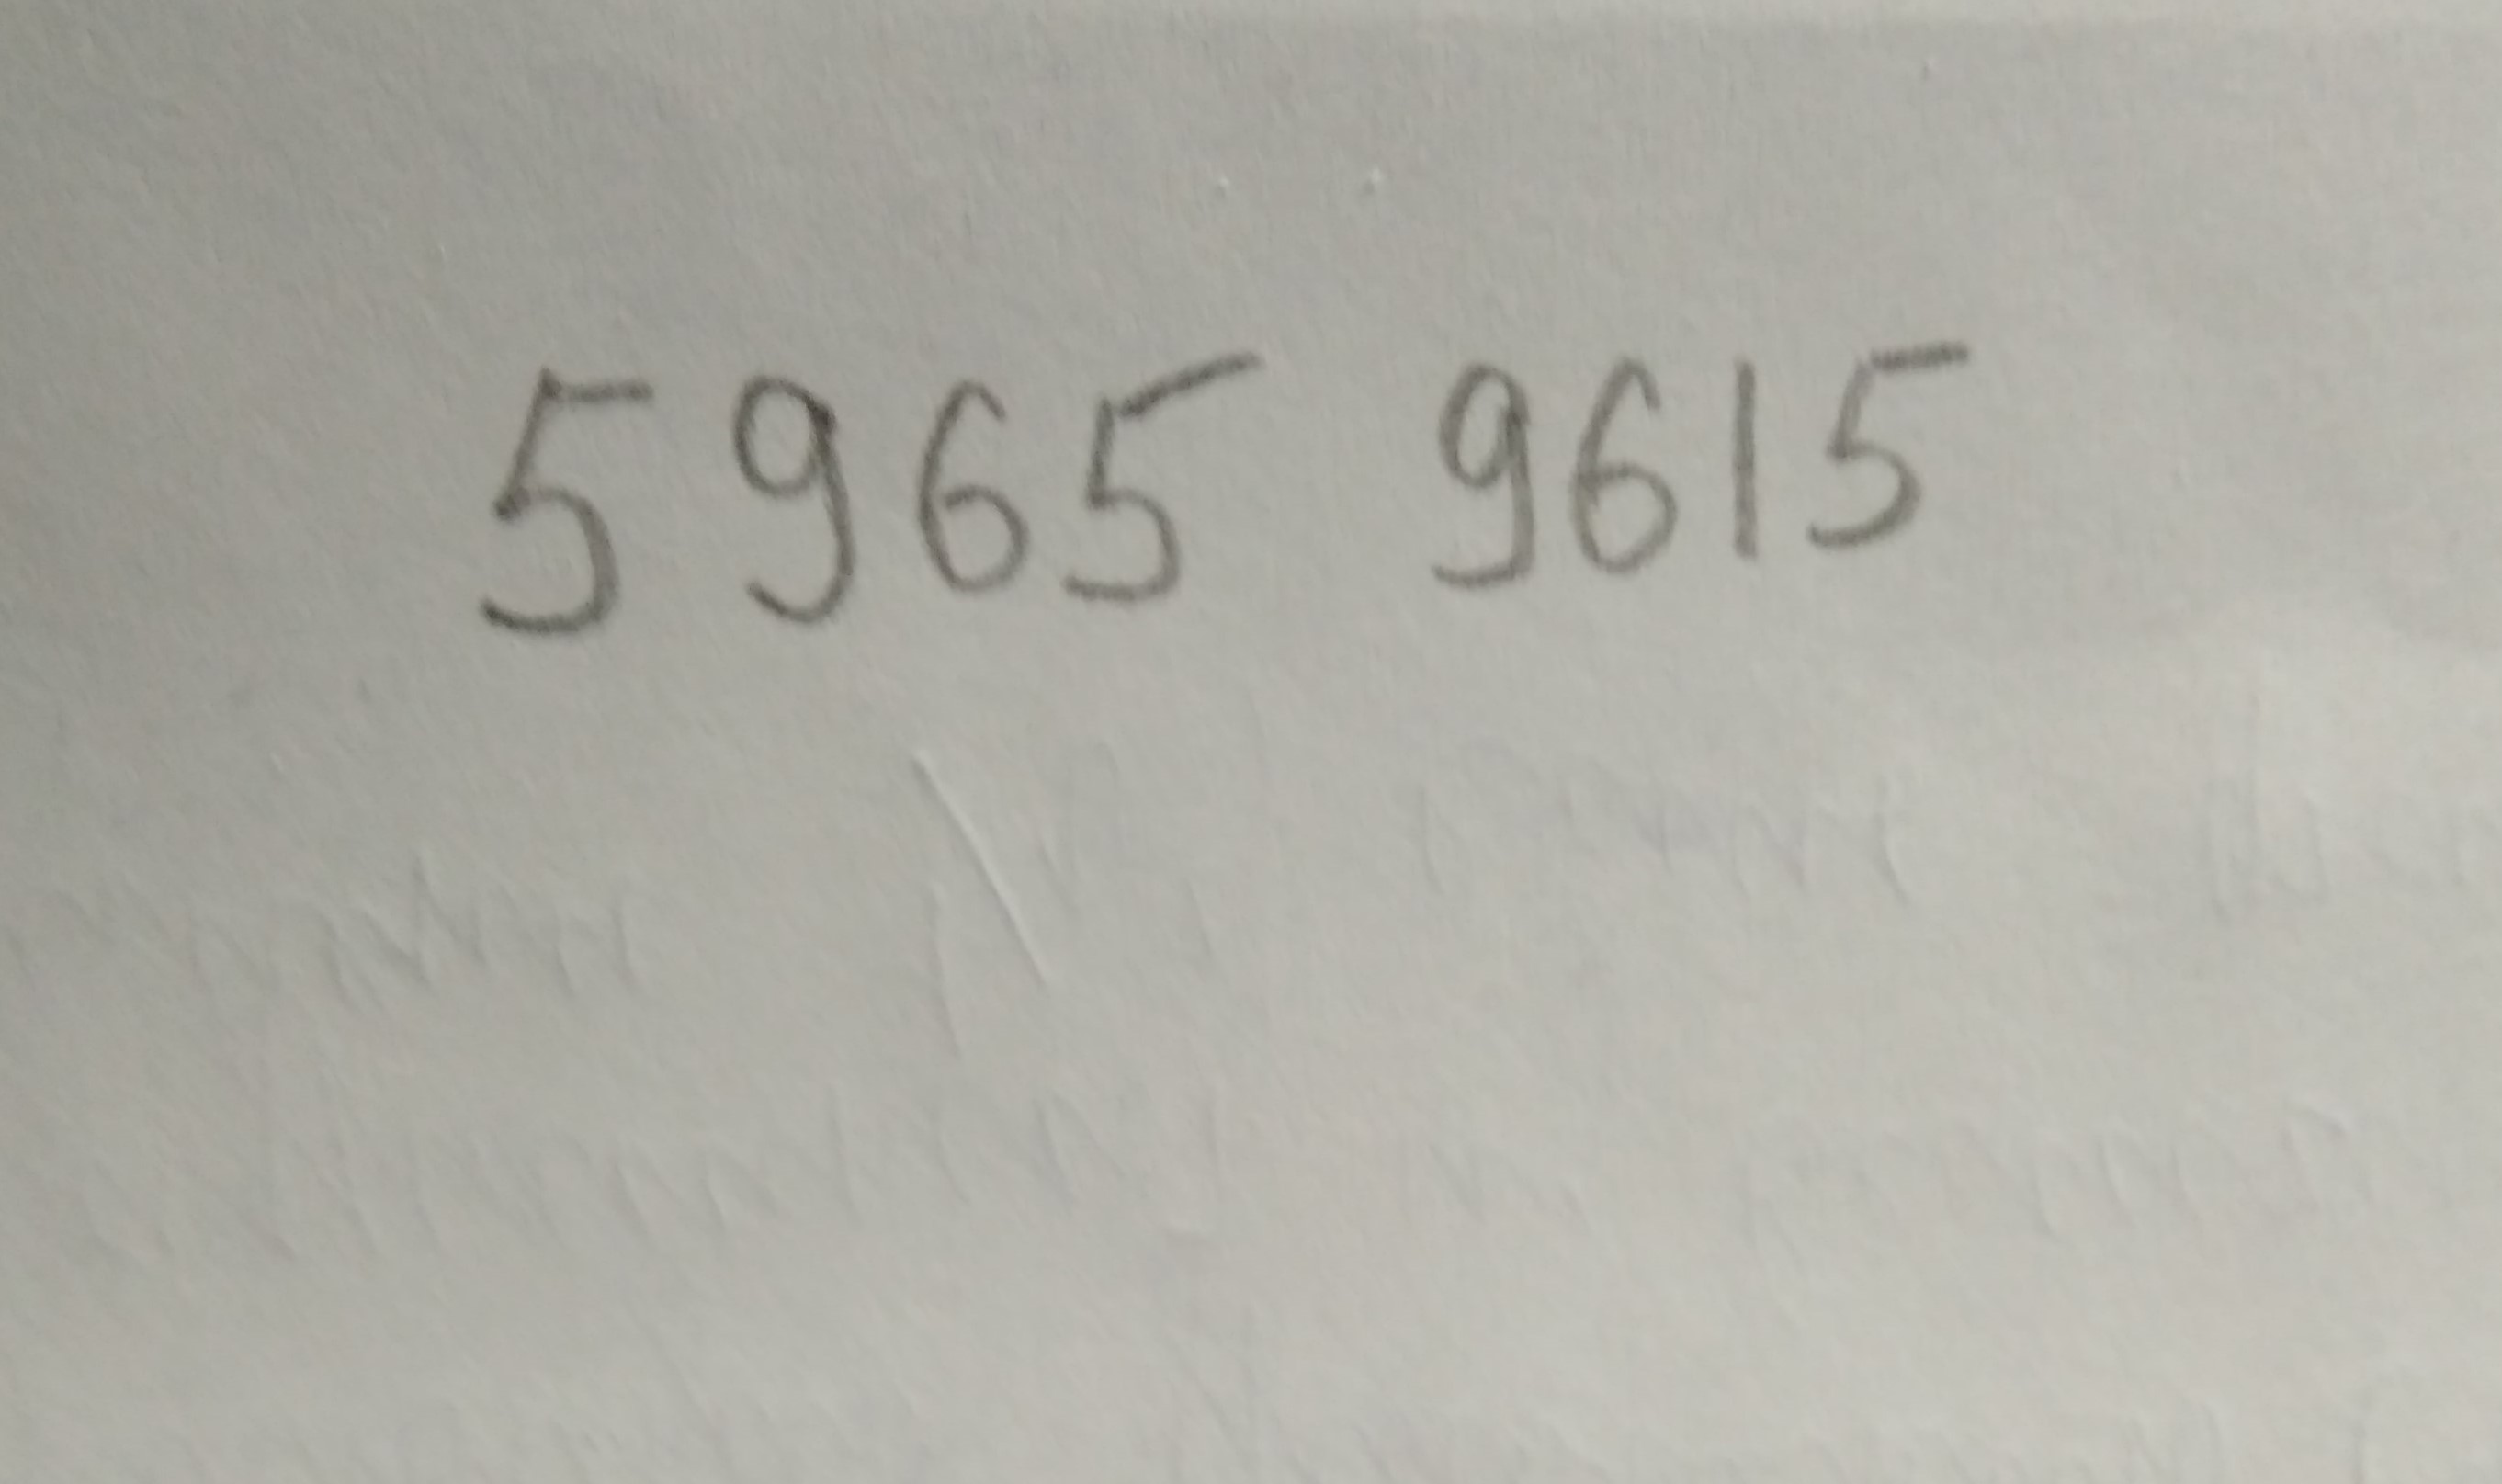 5965 9615